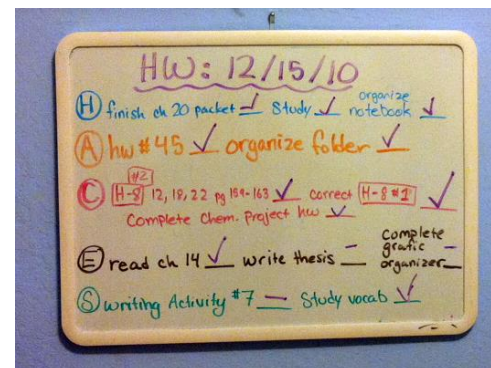 HW: 12/15/10
H finish ch 20 packet ✓ Study ✓ organize notebook ✓
A hw #45 ✓ organize folder ✓
#2
C H-8 12, 18, 22 pg 159-163 ✓ correct H-8 #1 ✓
Complete Chem. project hw ✓
E read ch 14 ✓ write thesis _ complete grafic organizer _
S writing Activity #7 _ Study vocab ✓